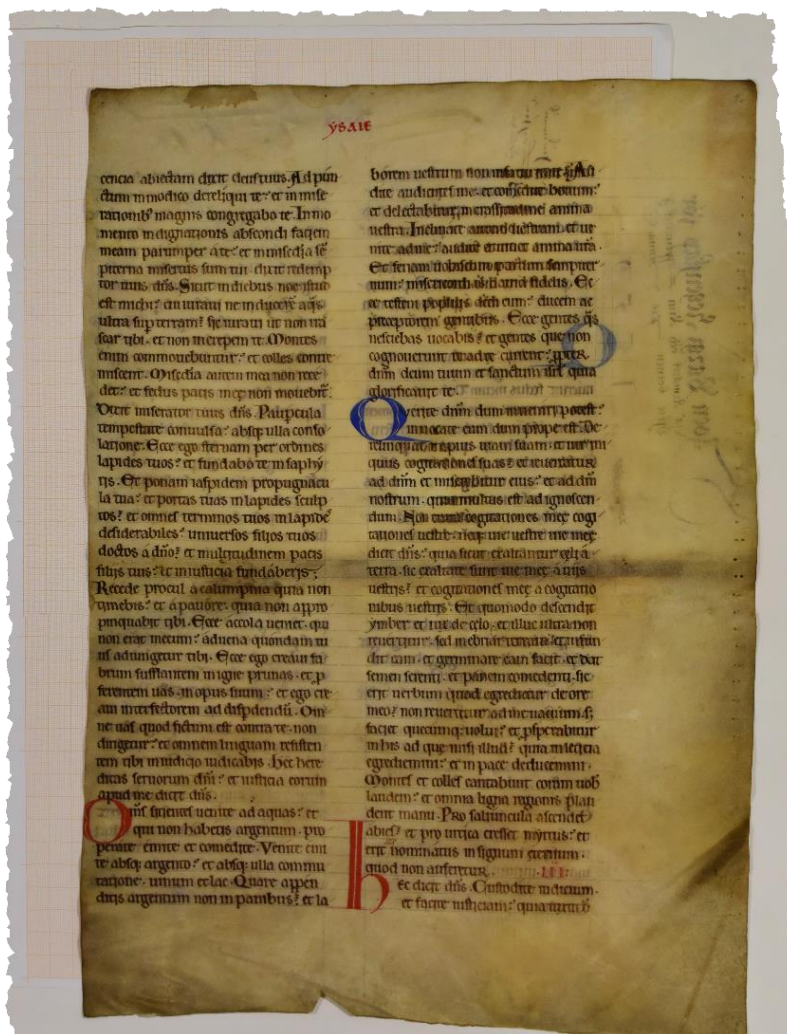 ysaie
cencia abiectam dicit deus tuus. Ad pun
ctum in modico dereliqui te: et in mise
rationib' magnis congregabo te. In mo
mento indignationis abscondi faciem
meam parumper a te: et in misc̄dia sē
piterna misertus sum tui. dicit redemp
tor tuus dñs. Sicut in diebus noe istud
est michi: cui iuravi ne inducerē aq̄s
ultra sup̄ terram: sic iuravi ut non ira
scar tibi. et non increpem te. Montes
enim commovebuntur: et colles contre
miscent. Misc̄dia autem mea non rece
det: et fedus pacis meę non movebit̄.
Dixit miserator tuus dñs. Paupercula
tempestate convulsa: absq̄ ulla conso
latione. Ecce ego sternam per ordines
lapides tuos: et fundabo te in saphy
ris. Et ponam iaspidem propugnacu
la tua: et portas tuas in lapides sculp
tos: et omnes terminos tuos in lapidē
desiderabiles: universos filios tuos
doctos a dño: et multitudinem pacis
filiis tuis: et in iusticia fundaberis.
Recede procul a calumphia quia non
timebis: et a pavore. quia non appro
pinquabit tibi. Ecce accola veniet. qui
non erat mecum: advena quondam tu
us adiungetur tibi. Ecce ego creavi fa
brum sufflantem in igne prunas. et p̄
ferentem vas. in opus suum: et ego cre
avi interfectorem ad disp̄dendū. Om
ne vas quod fictum est contra te. non
dirigetur: et omnem linguam resisten
tem tibi in iudicio iudicabis. Hec here
ditas servorum dñi: et iusticia eorum
apud me dicit dñs.
Oms sitientes venite ad aquas: et
qui non habetis argentum. pro
perate emite et comedite. Venite emi
te absq̄ argento: et absq̄ ulla commu
tatione. vinum et lac. Quare appen
ditis argentum non in panibus: et la
borem vestrum non in
dite audientes me. et comedite bonum:
et delectabitur in crassitudine anima
vestra. Inclinate aurem vestram. et ve
nite ad me: audite et vivet anima vr̄a.
Et feriam vobiscum pactum sempiter
num: misericordias david fidelis. Ec
ce testem populis dedi eum: ducem ac
preceptorem gentibus. Ecce gentes q̄s
nesciebas vocabis: et gentes que non
cognoverunt te ad te current: p̄pter
dñm deum tuum et sanctum isr̄l. quia
glorificavit te.
Querite dñm dum inveniri potest:
invocate eum dum prope est. De
relinquat impius viam suam. et vir ini
quus cogitationes suas: et revertatur
ad dñm et miserebitur eius: et ad dm̄
nostrum. quia multus est ad ignoscen
dum. Non enim cogitationes meę cogi
tationes vestrę: neq̄ vie vestre vie meę
dicit dñs: quia sicut exaltantur cęli a
terra. sic exaltate sunt vie meę a viis
vestris: et cogitationes meę a cogitatio
nibus vestris. Et quomodo descendit
ymber et nix de celo. et illuc ultra non
revertitur. sed inebriat terram. et infun
dit eam. et germinare eam facit. et dat
semen serenti. et panem comedenti. sic
erit verbum quod egredietur de ore
meo: non revertetur ad me vacuum. s;
faciet quecumq̄ volui: et p̄sperabitur
in his ad que misi illud: quia in leticia
egrediemini: et in pace deducemini.
Montes et colles cantabunt coram vob̄
laudem: et omnia ligna regionis plau
dent manu. Pro saliuncula ascendet
abies: et pro urtica crescet myrtus: et
erit nominatus in signum eternum.
quod non auferetur.
hec dicit dñs. Custodite iudicium.
et facite iusticiam: quia iuxta